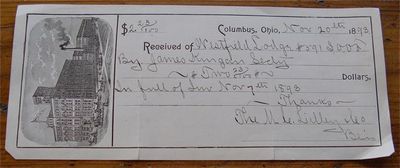 $2 28/100 Columbus, Ohio, Nov 20th 1893
Received of Westfield Lodge # 391 I.O.O.F.
By James Kingdon Secty
Two 28/100 Dollars.
In full of Inv Nov 7th 1893
Thanks
The M. C. Lilley & Co